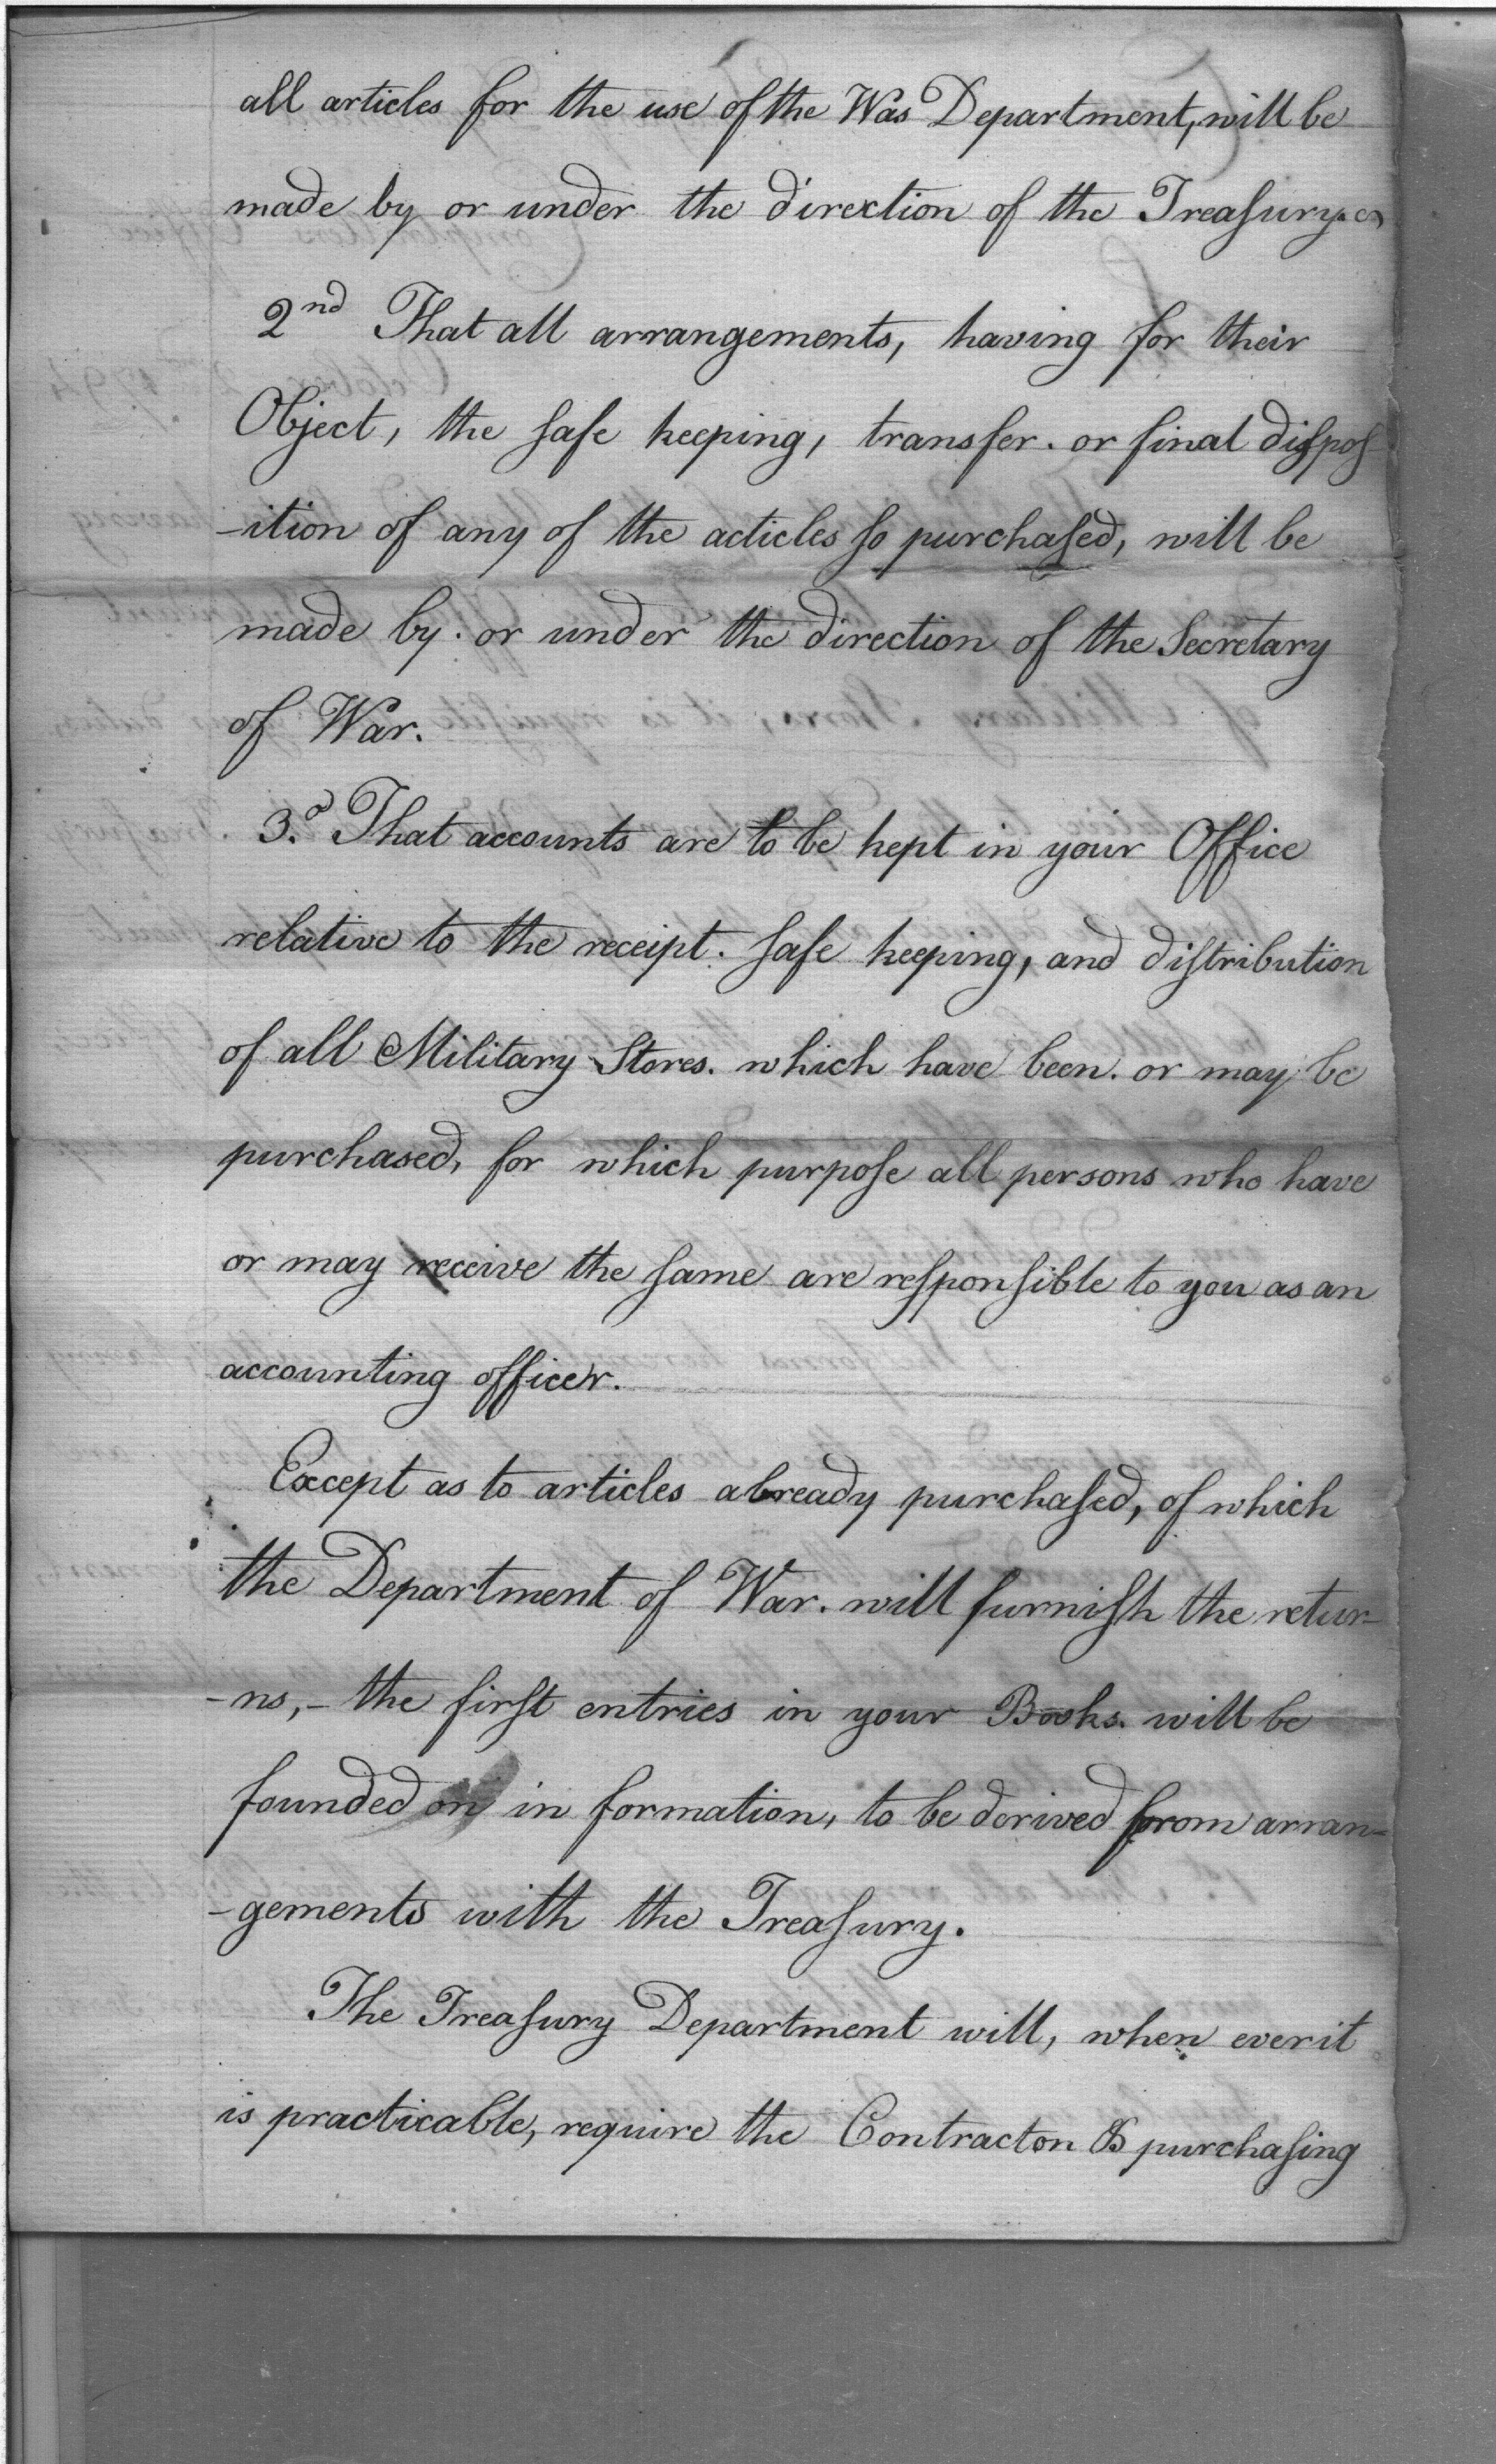 all articles for the use of the Was Department, will be
made by or under the direction of the Treasury.
2nd That all arrangements, having for their
Object, the safe keeping, transfer. or final dispos-
-ition of any of the acticles so purchased, will be
made by. or under the direction of the Secretary
of War.
3.d That accounts are to be kept in your Office
relative to the receipt. safe keeping, and distribution
of all Military Stores. which have been. or may be
purchased, for which purpose all persons who have
or may receive the same are responsible to you as an
accounting officer.
Except as to articles already purchased, of which
the Department of War. will furnish the retur-
-ns,- the first entries in your Books. will be
founded on in formation, to be derived from arran-
-gements with the Treasury.
The Treasury Department will, when ever it
is practicable, require the Contracton & purchasing